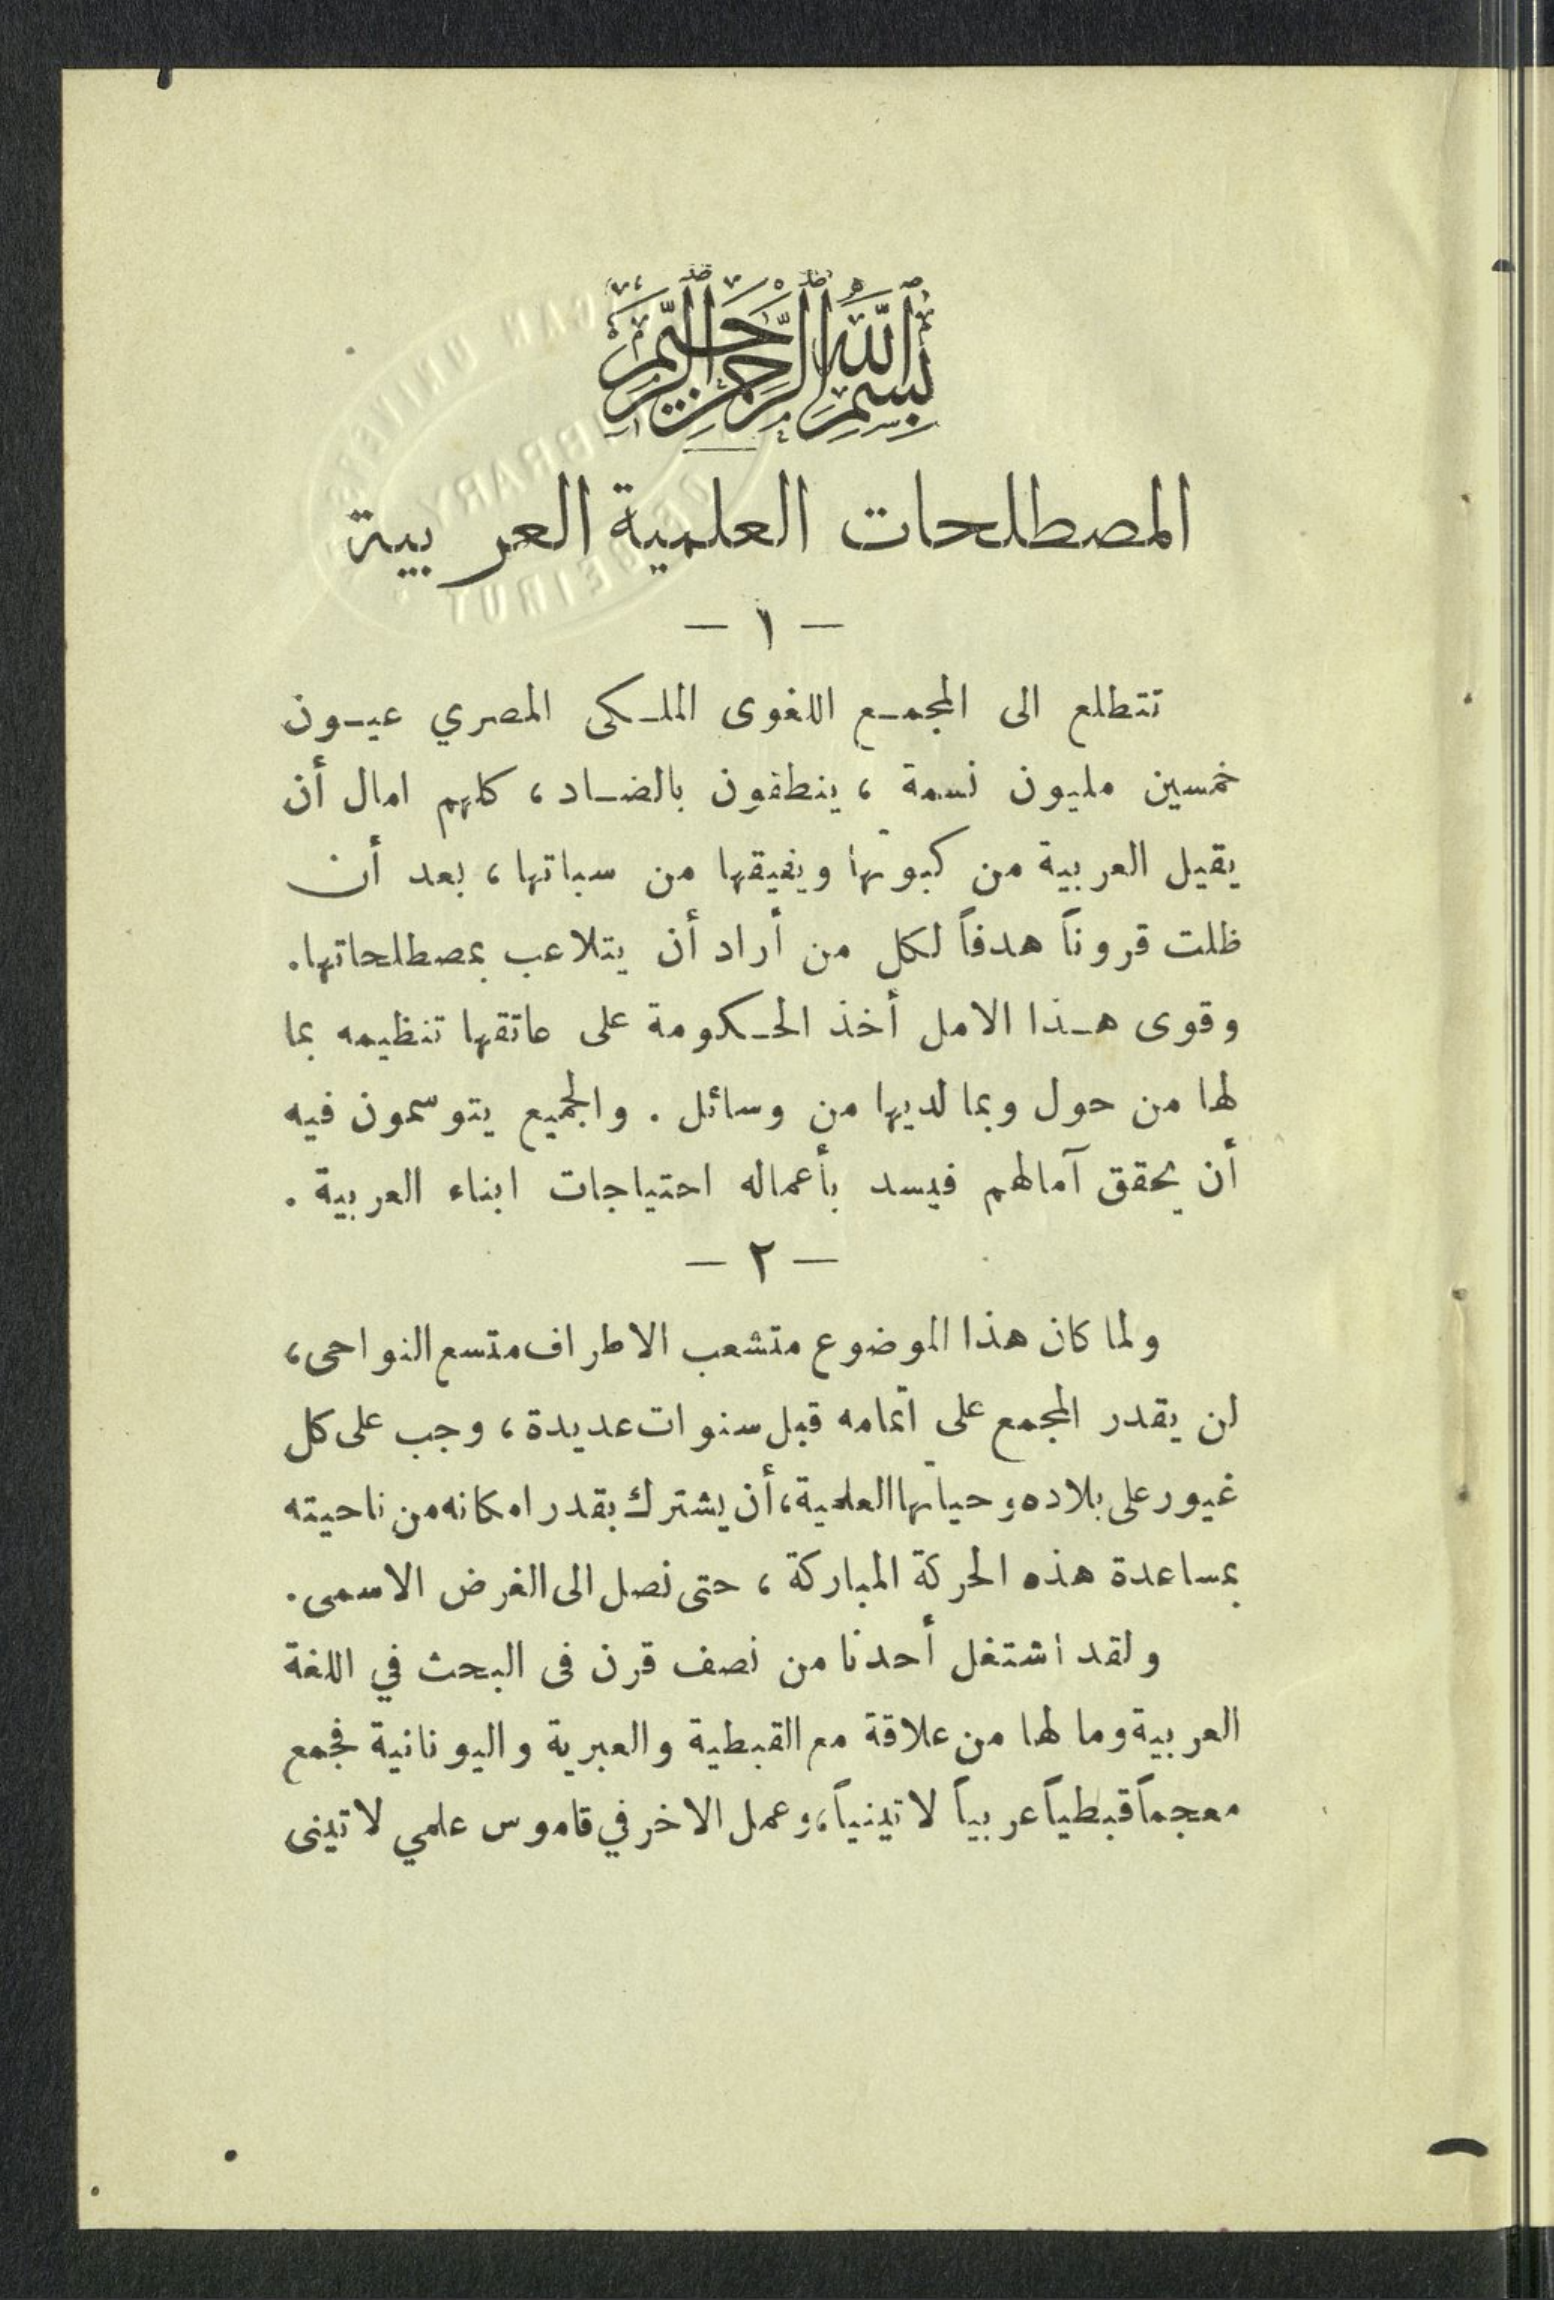 بسم الله الرحمن الرحيم
المصطلحات العلمية العربية
— ١ —
تتطلع الى المجمع اللغوى الملكى المصري عيون
خمسين مليون نسمة ، ينطقون بالضاد ، كلهم امال أن
يقيل العربية من كبوتها ويفيقها من سباتها ، بعد أن
ظلت قروناً هدفاً لكل من أراد أن يتلاعب بمصطلحاتها .
وقوى هذا الامل أخذ الحكومة على عاتقها تنظيمه بما
لها من حول وبما لديها من وسائل . والجميع يتوسمون فيه
أن يحقق آمالهم فيسد بأعماله احتياجات ابناء العربية .
— ٢ —
ولما كان هذا الموضوع متشعب الاطراف متسع النواحى ،
لن يقدر المجمع على اتمامه قبل سنوات عديدة ، وجب على كل
غيور على بلاده وحياتها العلمية ، أن يشترك بقدر امكانه من ناحيته
بمساعدة هذه الحركة المباركة ، حتى نصل الى الغرض الاسمى .
ولقد اشتغل أحدنا من نصف قرن فى البحث في اللغة
العربية وما لها من علاقة مع القبطية والعبرية واليونانية فجمع
معجماً قبطياً عربياً لاتينياً ، وعمل الاخر في قاموس علمي لاتينى